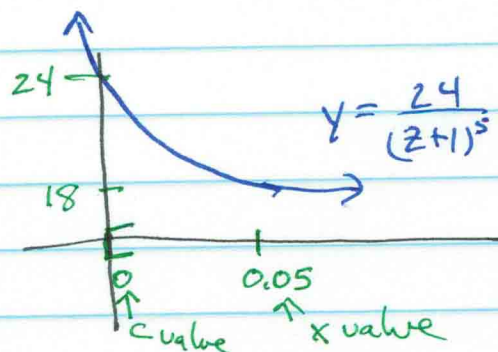 24
y = 24/(z+1)^5
18
0
0.05
↑
↑
c value
x value